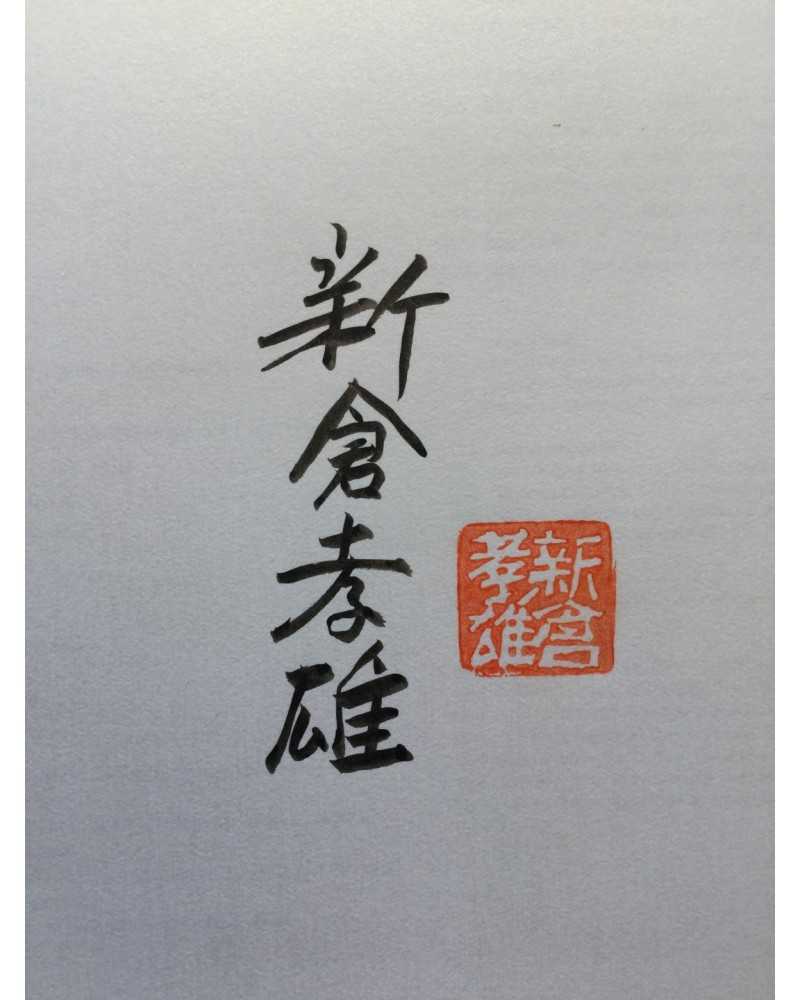 新倉孝雄
新倉
孝雄